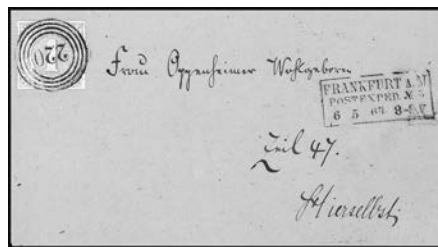 220
Frau Oppenheimer Wohlgeborn
FRANKFURT A.M
POSTEXPED. №
6 5 67 8-9 V.
Zeil 47.
Hierselbst